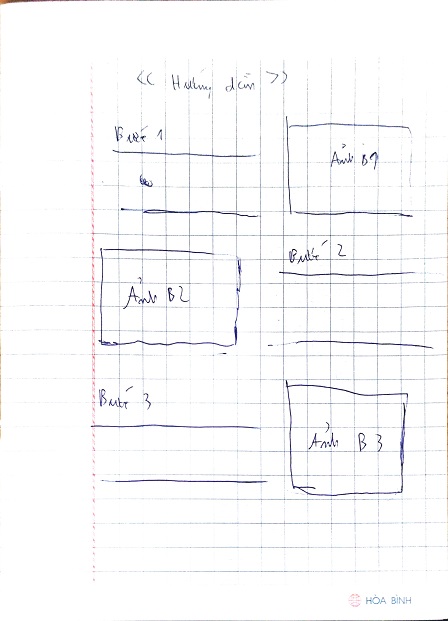 << Hướng dẫn >>
Bước 1
Ảnh B1
Bước 2
Ảnh B2
Bước 3
Ảnh B3
HÒA BÌNH